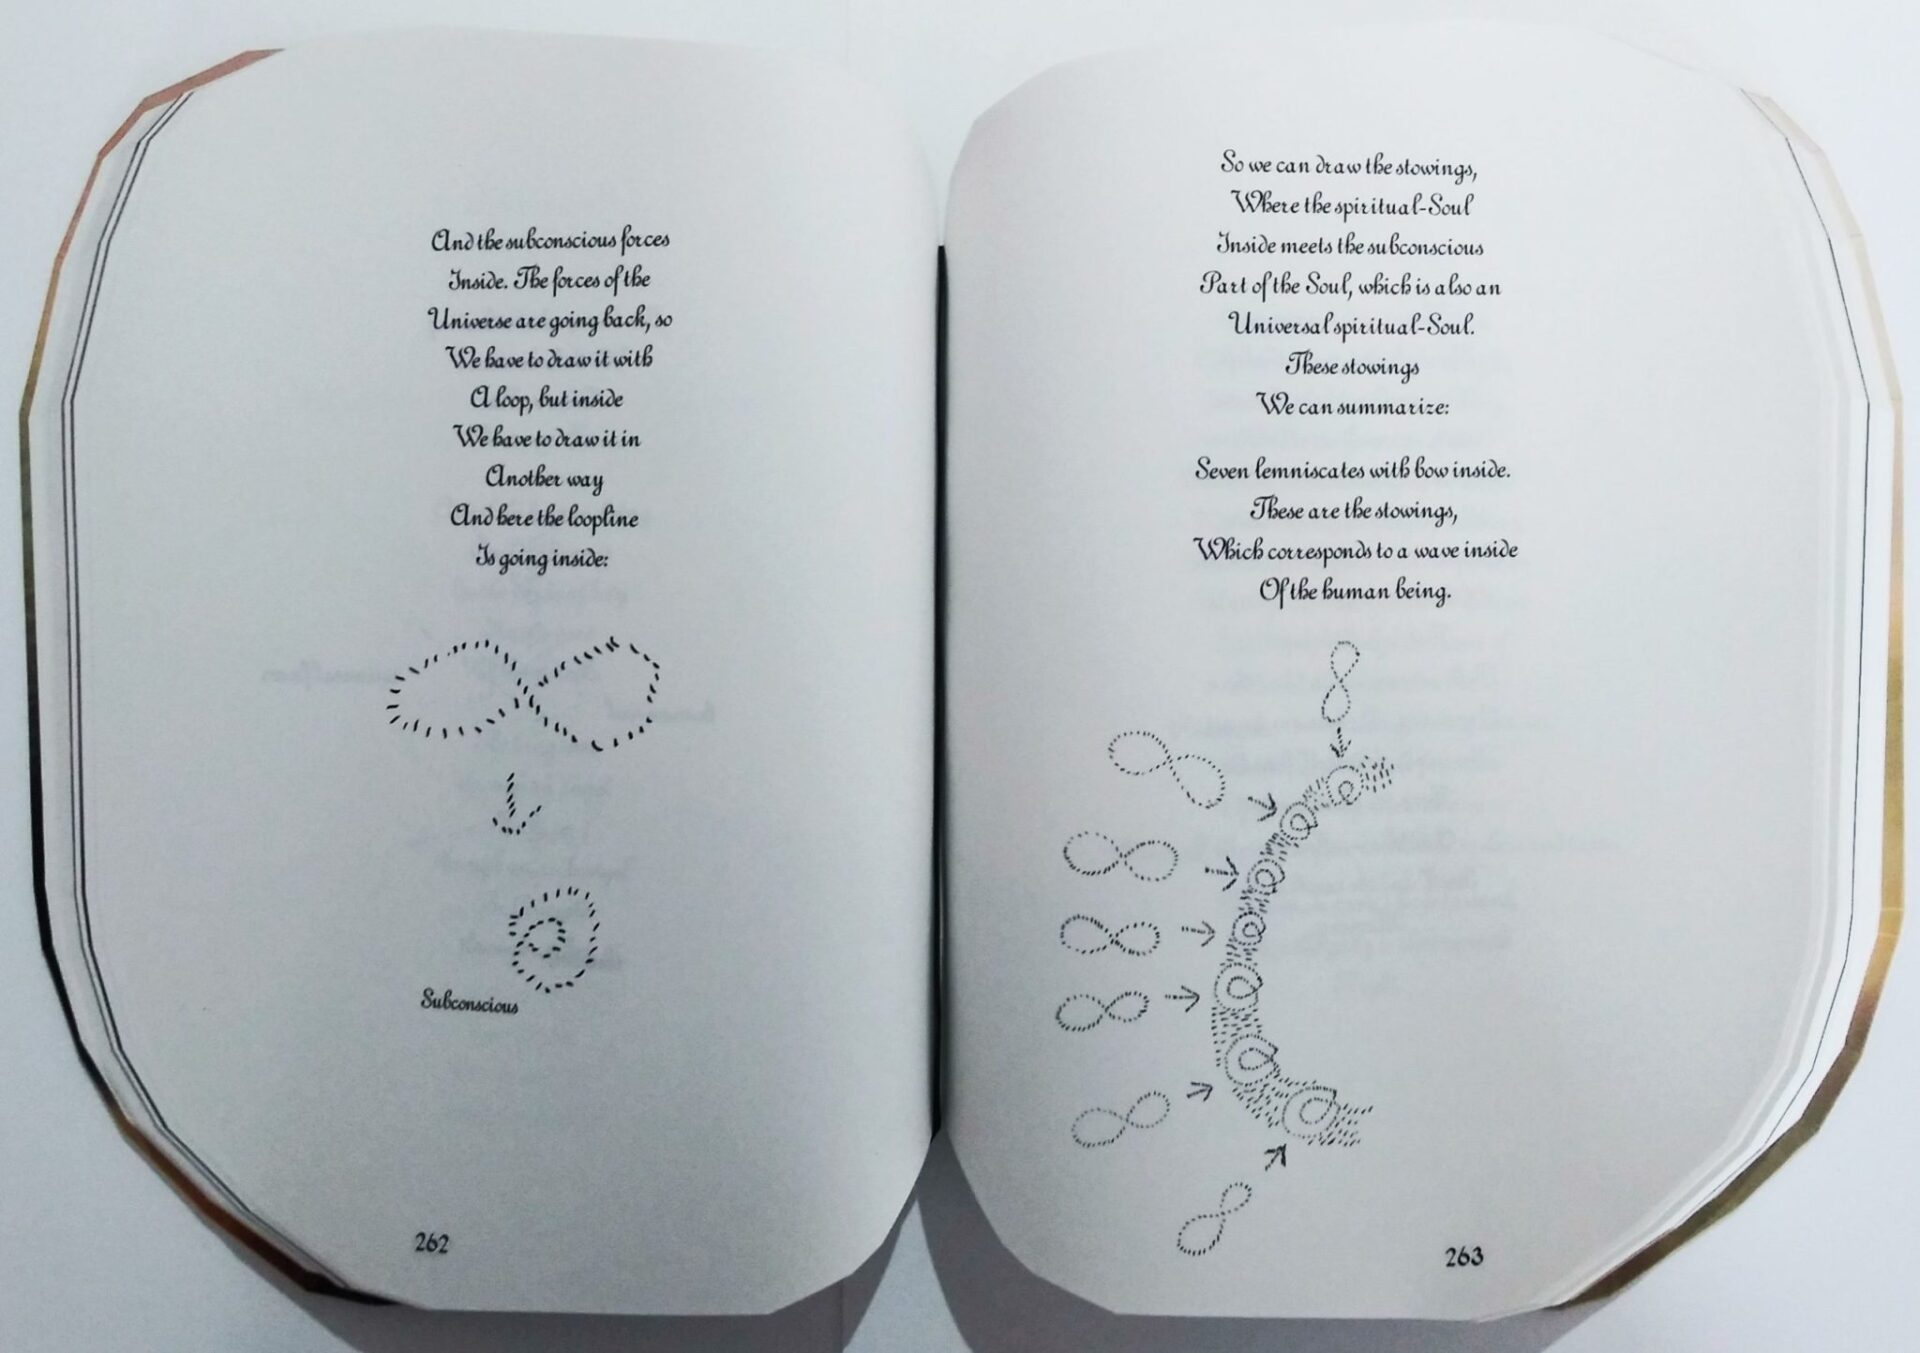 And the subconscious forces
Inside. The forces of the
Universe are going back, so
We have to draw it with
A loop, but inside
We have to draw it in
Another way
And here the loopline
Is going inside:
Subconscious
262
So we can draw the stowings,
Where the spiritual-Soul
Inside meets the subconscious
Part of the Soul, which is also an
Universal spiritual-Soul.
These stowings
We can summarize:
Seven lemniscates with bow inside.
These are the stowings,
Which corresponds to a wave inside
Of the human being.
263